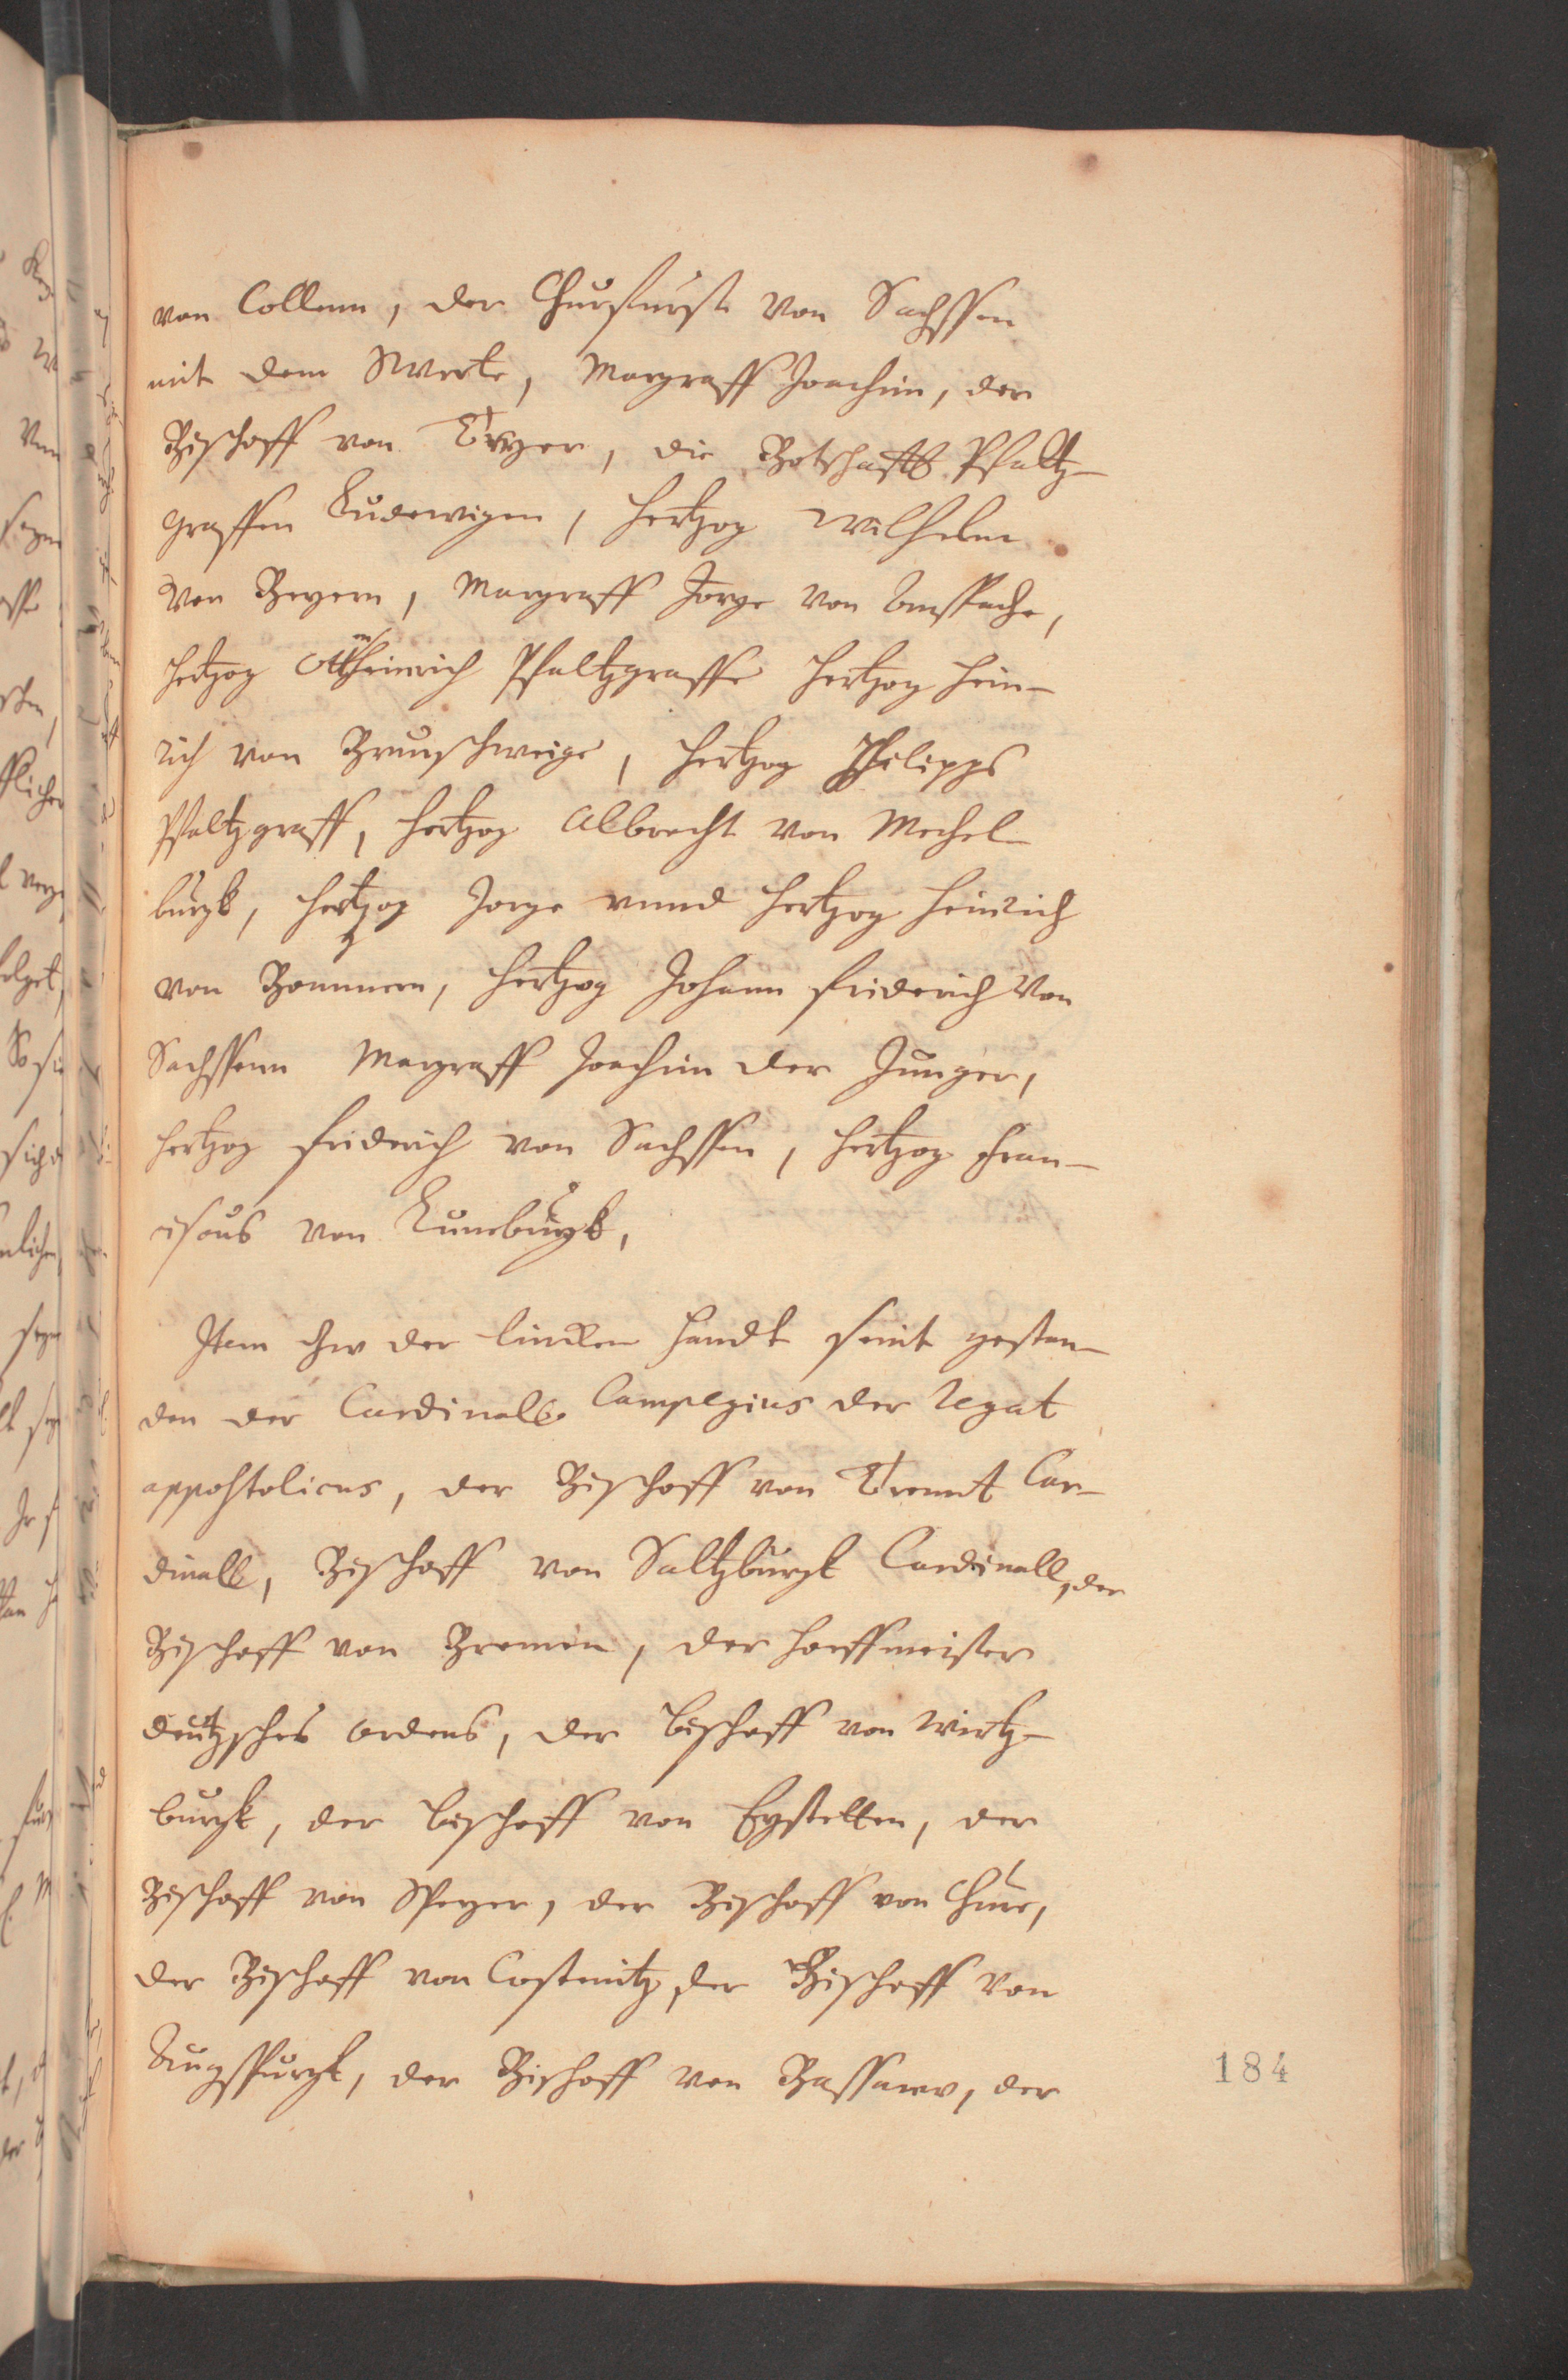 von Collenn, der Churfurst von Sachssen
mit dem Swerte, Margraff Joachim, der
Bischoff von Tryer, die Botschafft Pfaltz-
graffen Ludewigen, Hertzog Wilhelm
von Beyern, Margraff Jorge von Anspache,
Hertzog Ottheinrich Pfaltzgraffe Hertzog Hein-
rich von Brunschweige, Hertzog Philipps
Pfaltzgraff, Hertzog Albrecht von Mechel-
burgk, Hertzog Jorge unnd Hertzog Heinrich
von Bommern, Hertzog Johann Friderich von
Sachssenn Margraff Joachim der Junger,
Hertzog Friderich von Sachssen, Hertzog Fran-
ciscus von Luneburgk,
Item zw der lincken Handt seint gestan-
den der Cardinall Campegius der Legat
appostolicus, der Bischoff von Trennt Car-
dinall, Bischoff von Saltzburgk Cardinall, der
Bischoff von Bremen, der Hoeffmeister
deutzsches Ordens, der Bischoff von Wirtz-
burgk, der Bischoff von Eystetten, der
Bischoff von Speyer, der Bischoff von Chur,
der Bischoff von Costnitz, der Bischoff von
Augspurgk, der Bischoff von Bassaw, der
184